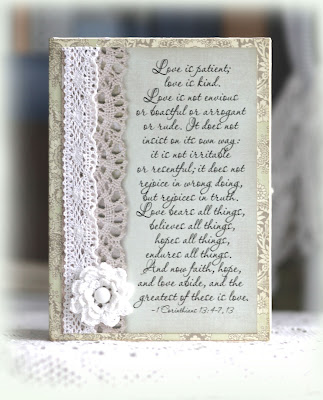 Love is patient;
love is kind.
Love is not envious
or boastful or arrogant
or rude. It does not
insist on its own way:
it is not irritable
or resentful; it does not
rejoice in wrong doing,
but rejoices in truth.
Love bears all things,
believes all things,
hopes all things,
endures all things.
And now faith, hope,
and love abide, and the
greatest of these is love.
~1 Corinthians 13:4-7, 13